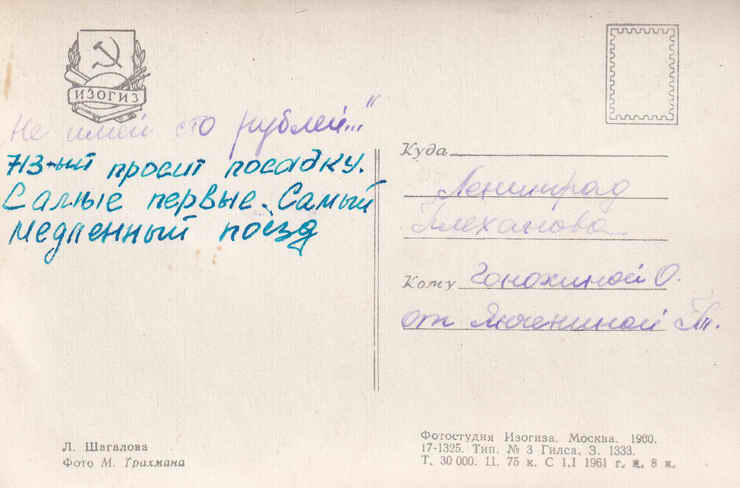 ИЗОГИЗ
Не имей сто рублей..."
713-ый просит посадку.
Самые первые. Самый
медленный поезд
Куда
Ленинград
Плеханова
Кому Ганохиной О.
от Люпениной Т.
Л. Шагалова
Фото М. Трахмана
Фотостудия Изогиза. Москва. 1960.
17-1325. Тип. № 3 Гилса. З. 1333.
Т. 30 000. 11. 75 к. С 1.I 1961 г. ц. 8 к.